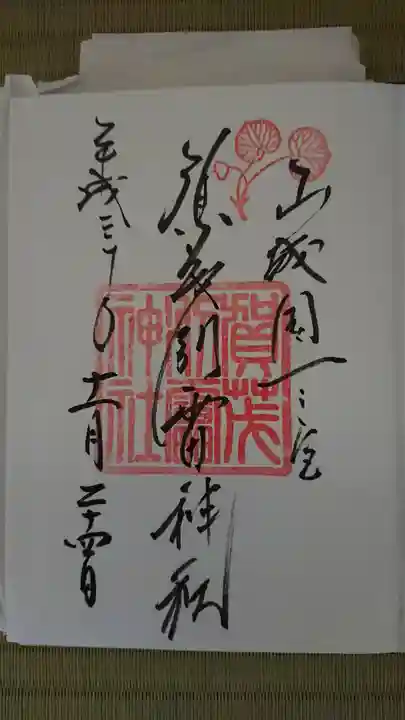 山城国一之宮
賀茂別雷神社
平成三十年十一月二十四日
賀茂別雷神社